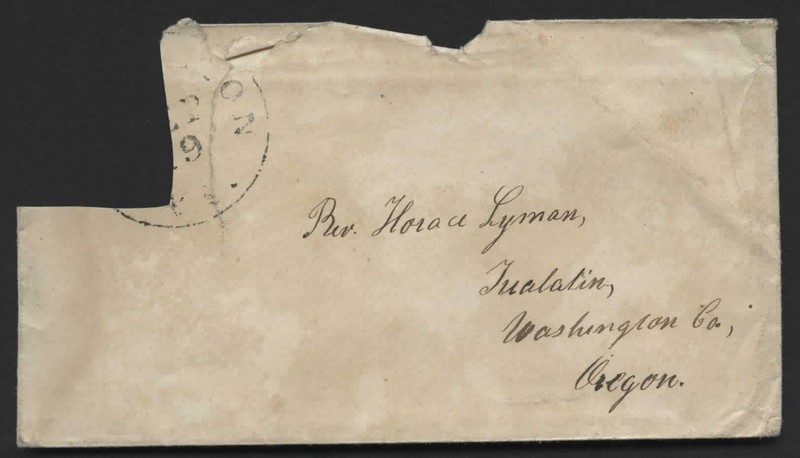 ON
Rev. Horace Lyman,
Tualatin,
Washington Co.,
Oregon.